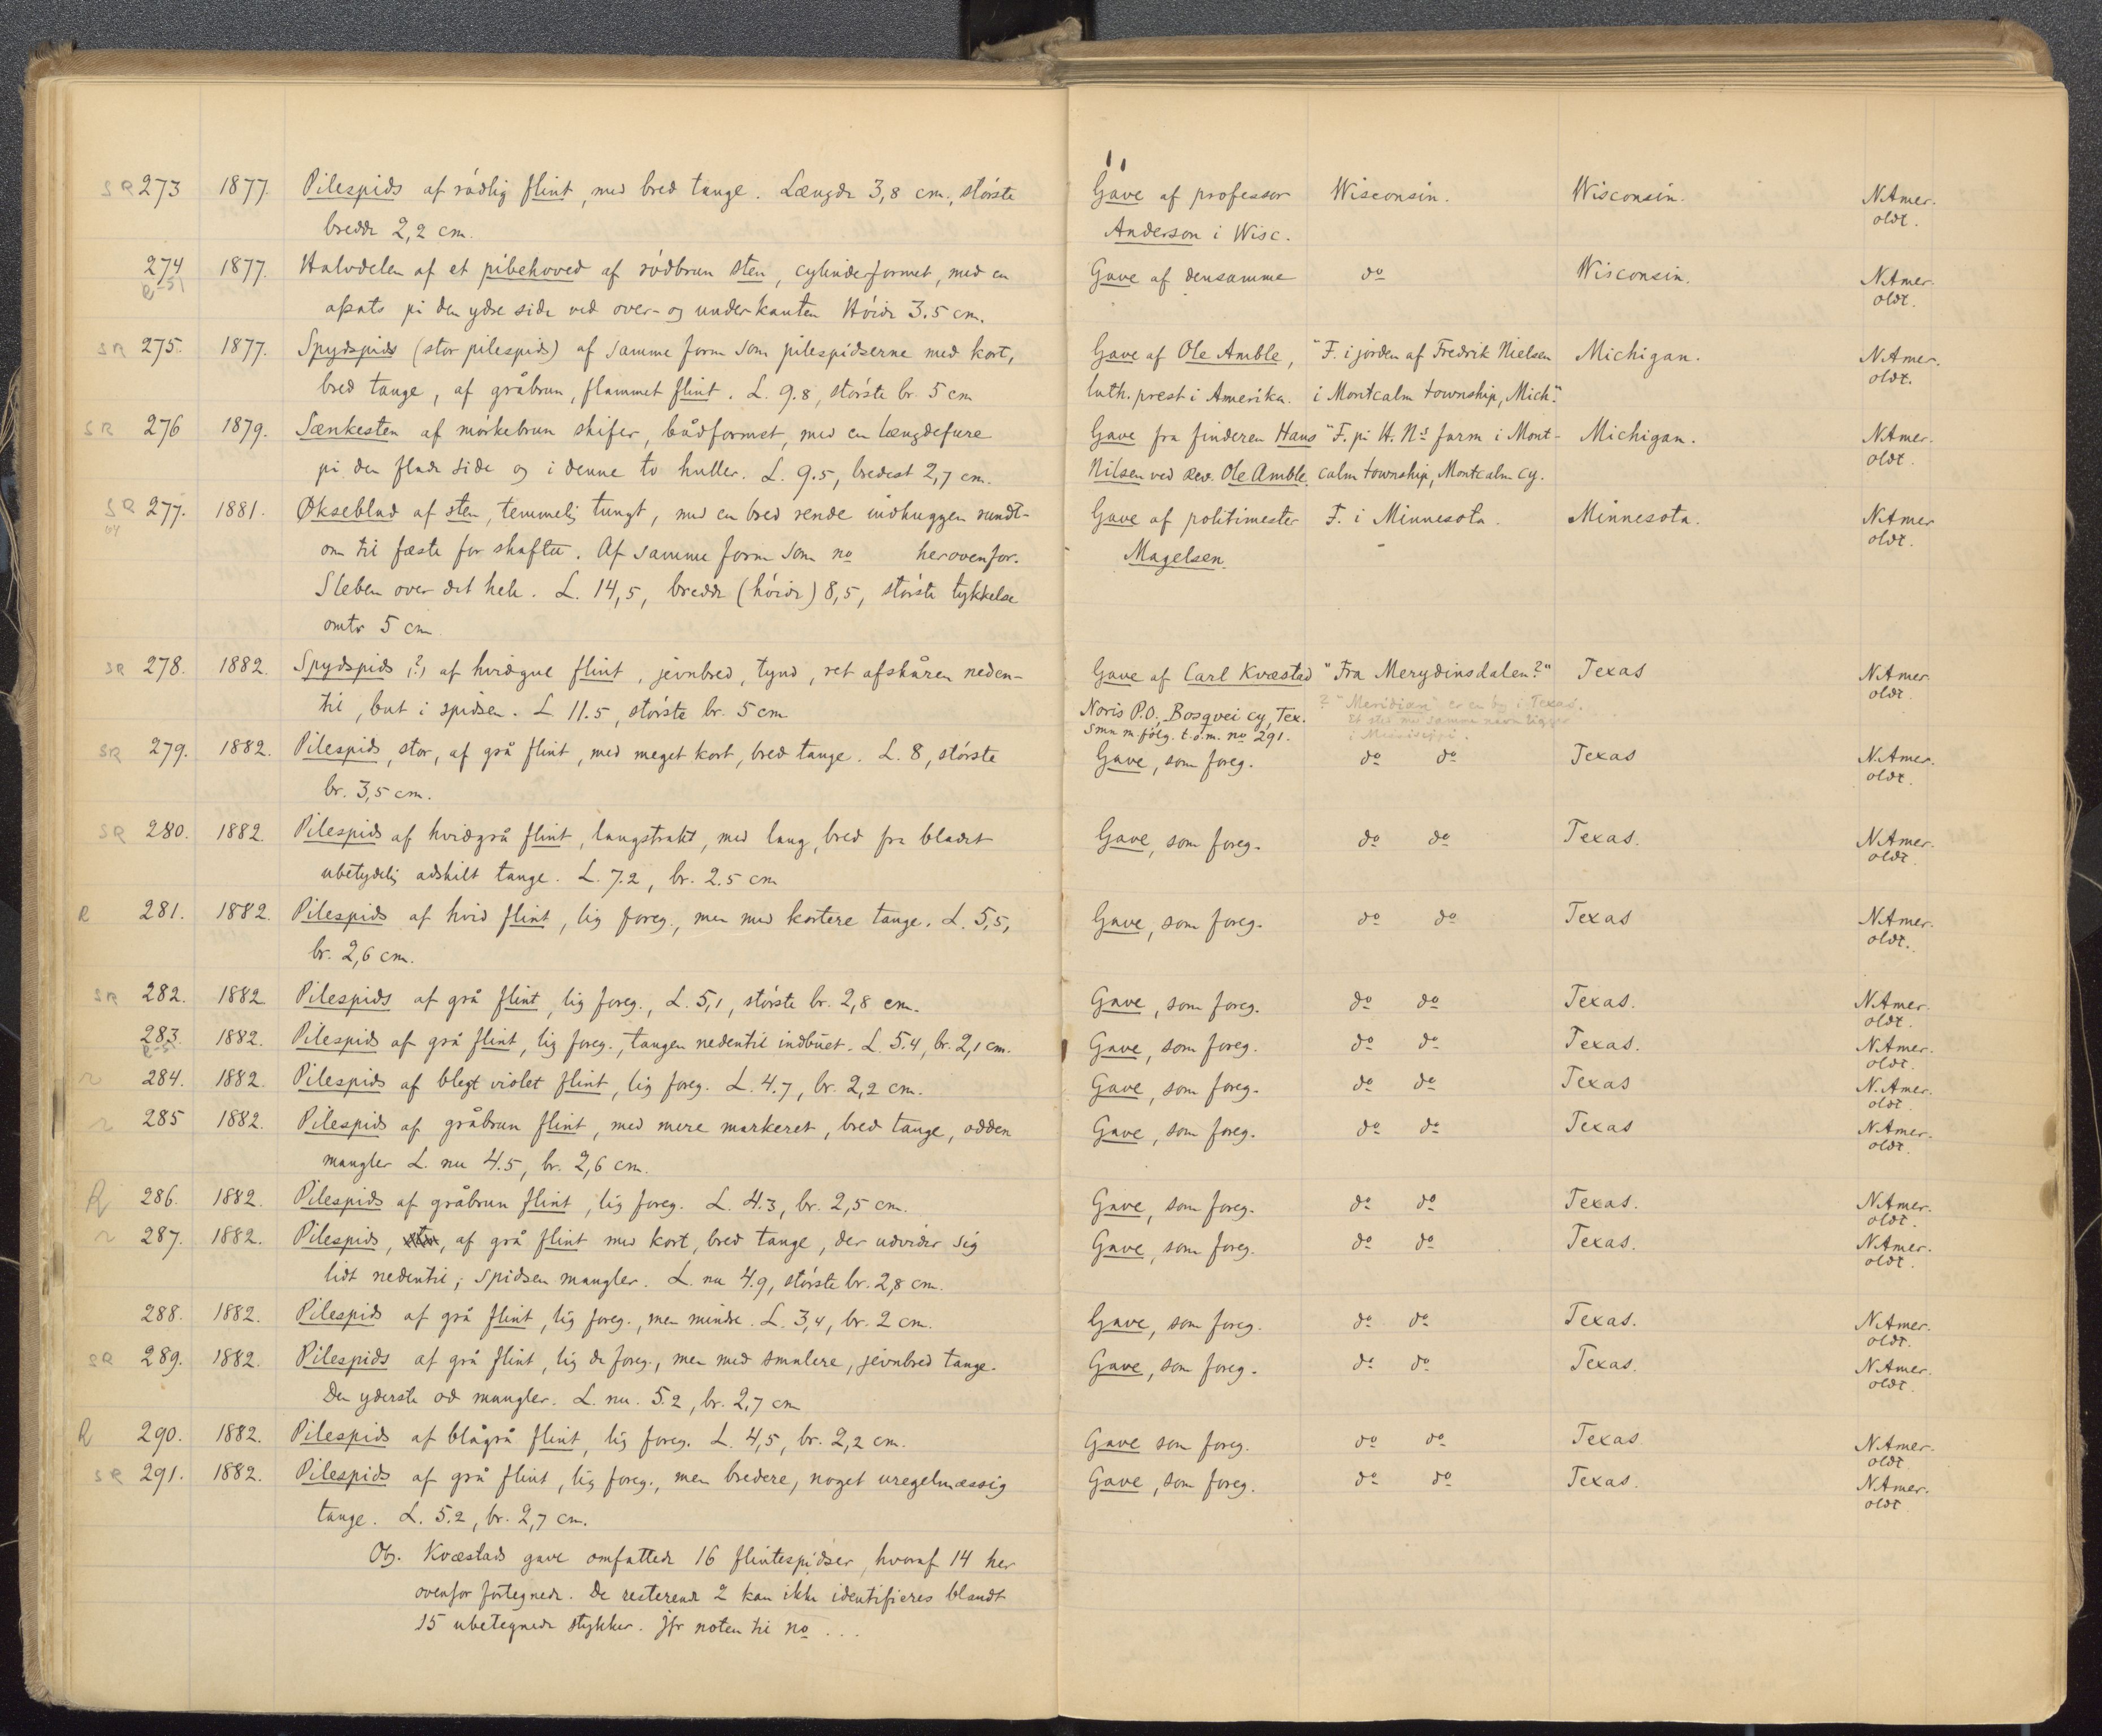 SR 273 1877. Pilespids af rödlig flint, med bred tange. Længde 3,8 cm., störste Gave af professor Wisconsin. Wisconsin. N.Amer.
bredde 2,2 cm. Anderson i Wisc. oldt.
274 1877. Halvdelen af et pibehoved af rödbrun sten, cylinderformet, med en Gave af densamme do Wisconsin. N.Amer.
afsats på den ydre side ved over- og underkanten Höide 3.5 cm. oldt.
SR 275. 1877. Spydspids (stor pilespids) af samme form som pilespidserne med kort, Gave af Ole Amble, "F. i jorden af Fredrik Nielsen Michigan. N.Amer.
bred tange, af gråbrun, flammet flint. L. 9.8, störste br. 5 cm luth. prest i Amerika. i Montcalm township, Mich." oldt.
SR 276 1879. Sænkesten af mörkebrun skifer, bådformet, med en længdefure Gave fra finderen Hans "F. på H. Ns farm i Mont- Michigan. N.Amer.
på den flade side og i denne to huller. L. 9.5, bredest 2,7 cm. Nilsen ved Rev. Ole Amble. calm township, Montcalm Cy. oldt.
SR 277. 1881. Økseblad af sten, temmelig tungt, med en bred rende indhuggen rundt- Gave af politimester F. i Minnesota. Minnesota. N.Amer
om til fæste for skaftet. Af samme form som no herovenfor. Magelsen. oldt.
Sleben over det hele. L. 14,5, bredde (höide) 8,5, störste tykkelse
omtr 5 cm
SR 278. 1882. Spydspids (?) af hvidgul flint, jevnbred, tynd, ret afskåren neden- Gave af Carl Kvæstad "Fra Merydinsdalen?" Texas N.Amer
til, but i spidsen. L 11.5, störste br. 5 cm Noris P.O., Bosqvei Cy, Tex. ? "Meridian" er en by i Texas. oldt.
smn m. fölg. t.o.m. no 291. Et sted med samme navn ligger
i Mississippi.
SR 279. 1882. Pilespids, stor, af grå flint, med meget kort, bred tange. L. 8, störste Gave, som foreg. do do Texas N.Amer.
br. 3,5 cm. oldt.
SR 280. 1882. Pilespids af hvidgrå flint, langstrakt, med lang, bred fra bladet Gave, som foreg. do do Texas. N.Amer.
ubetydelig adskilt tange. L. 7.2, br. 2.5 cm oldt.
R 281. 1882. Pilespids af hvid flint, lig foreg., men med kortere tange. L. 5,5, Gave, som foreg. do do Texas N.Amer.
br. 2,6 cm. oldt.
SR 282. 1882 Pilespids af grå flint, lig foreg., L. 5,1, störste br. 2,8 cm. Gave, som foreg. do do Texas. N.Amer.
oldt.
283. 1882. Pilespids af grå flint, lig foreg., tangen nedentil indbuet. L. 5.4, br. 2,1 cm. Gave, som foreg. do do Texas. N.Amer.
oldt.
r 284. 1882. Pilespids af blegt violet flint, lig foreg. L. 4.7, br. 2,2 cm. Gave, som foreg. do do Texas N.Amer.
oldt.
r 285 1882. Pilespids af gråbrun flint, med mere markeret, bred tange, odden Gave, som foreg. do do Texas N.Amer.
mangler L. nu 4.5, br. 2,6 cm. oldt.
R 286. 1882. Pilespids af gråbrun flint, lig foreg. L. 4.3, br. 2,5 cm. Gave, som foreg. do do Texas. N.Amer.
oldt.
r 287. 1882. Pilespids, af grå flint med kort, bred tange, der udvider sig Gave, som foreg. do do Texas. N.Amer.
lidt nedentil; spidsen mangler. L. nu 4.9, störste br. 2,8 cm. oldt.
288. 1882. Pilespids af grå flint, lig foreg., men mindre. L. 3,4, br. 2 cm. Gave, som foreg. do do Texas. N.Amer.
oldt.
SR 289. 1882. Pilespids af grå flint, lig de foreg., men med smalere, jevnbred tange. Gave, som foreg. do do Texas. N.Amer.
Den yderste od mangler. L. nu. 5.2, br. 2,7 cm oldt.
R 290. 1882. Pilespids af blågrå flint, lig foreg. L. 4,5, br. 2,2 cm. Gave som foreg. do do Texas N.Amer.
oldt
SR 291. 1882. Pilespids af grå flint, lig foreg., men bredere, noget uregelmæssig Gave, som foreg. do do Texas. N.Amer.
tange. L. 5.2, br. 2,7 cm. oldt
Kvæstads gave omfattede 16 flintespidser, hvoraf 14 her
ovenfor fortegnede. De resterende 2 kan ikke identifieres blandt
15 ubetegnede stykker. Jfr noten til no ...